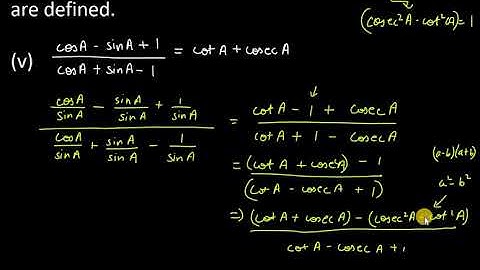 are defined.
(cosec²A - cot²A) = 1
(v) cosA - sinA + 1 / cosA + sinA - 1 = cotA + cosecA
cosA/sinA - sinA/sinA + 1/sinA / cosA/sinA + sinA/sinA - 1/sinA = cotA - 1 + cosecA / cotA + 1 - cosecA
= (cotA + cosecA) - 1 / (cotA - cosecA + 1)
(a-b)(a+b)
a² = b²
⇒ (cotA + cosecA) - (cosec²A - cot²A) / cotA - cosecA + 1